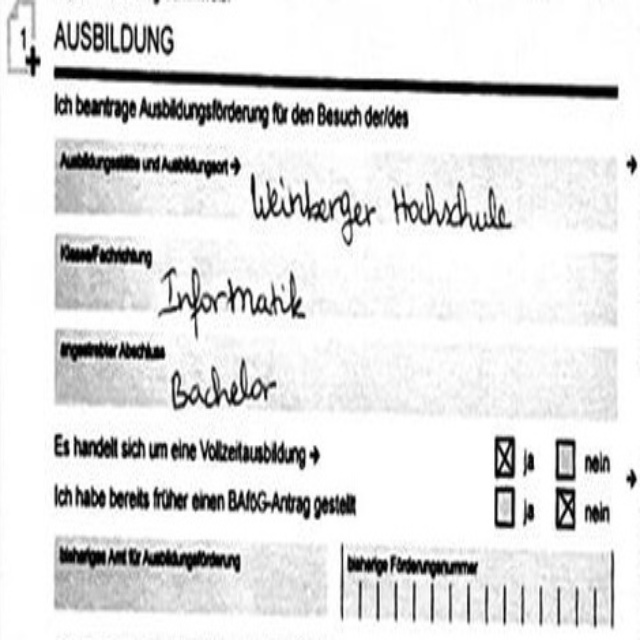 1
AUSBILDUNG
Ich beantrage Ausbildungsförderung für den Besuch der/des
Ausbildungsstätte und Ausbildungsort →
Weinberger Hochschule
Klasse/Fachrichtung
Informatik
angestrebter Abschluss
Bachelor
Es handelt sich um eine Vollzeitausbildung → ja nein
Ich habe bereits früher einen BAföG-Antrag gestellt ja nein
bisheriges Amt für Ausbildungsförderung
bisherige Förderungsnummer